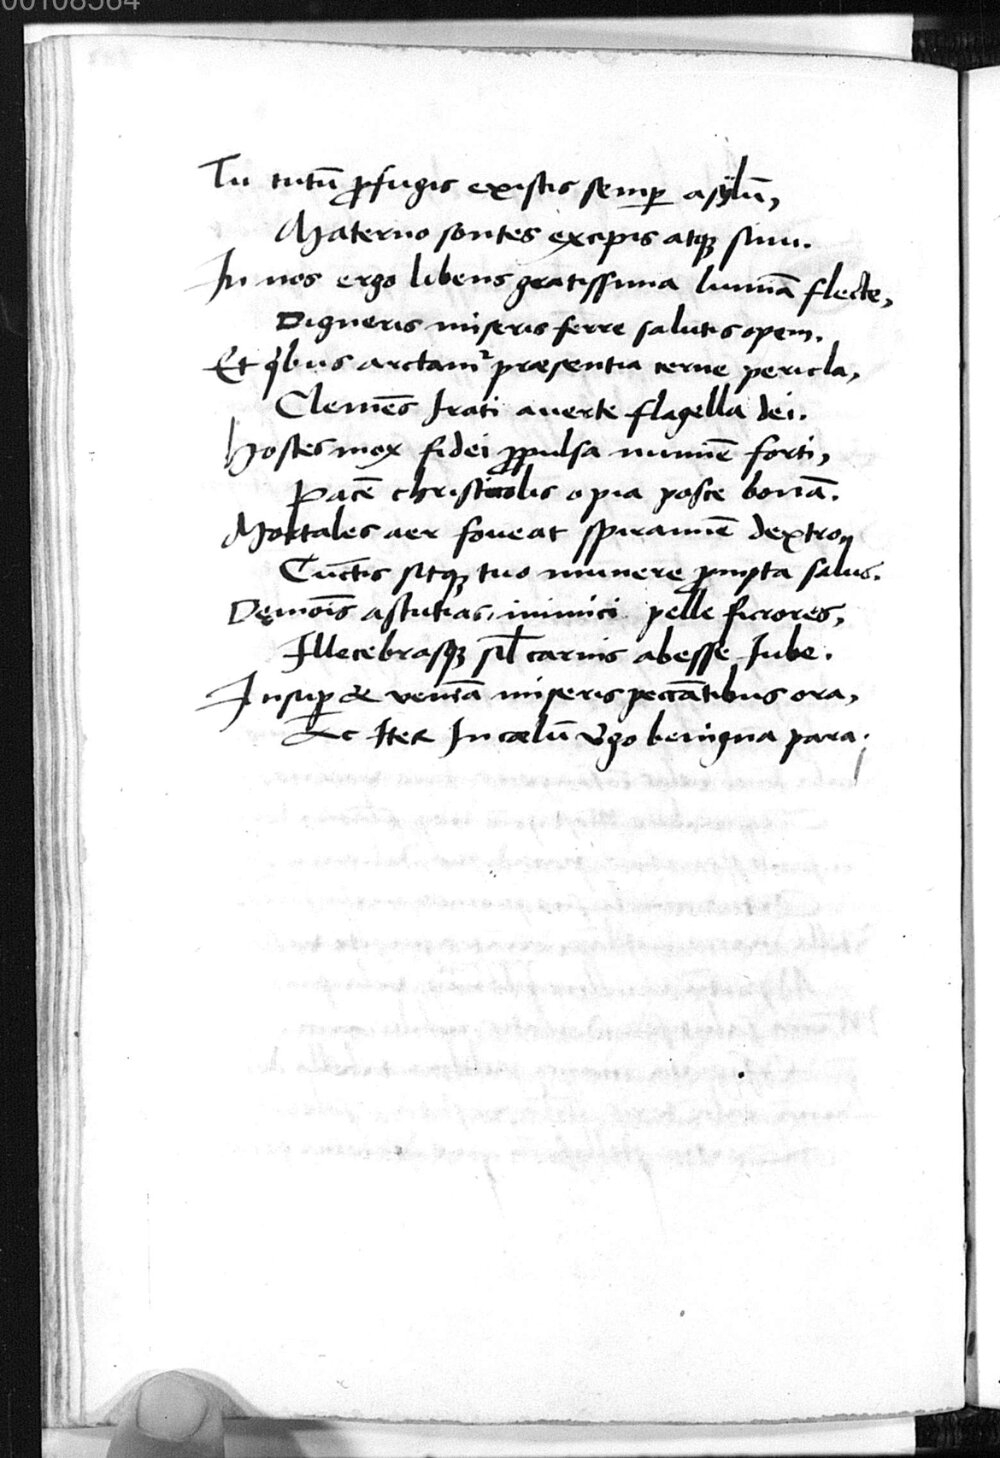 00108564
Tu tutū ꝓfugis existis semꝑ asylū,
Materno sontes excipis atqꝫ sinu.
In nos ergo libens gratissima lumīa flecte,
Digneris miseris ferre salutis opem.
Et qͥbus arctamᷣ præsentia terue pericla,
Clemēs Irati auerte flagella dei.
Hostes mox fidei ꝓpulsa numīe forti,
Pacē christicolis o pia posce bonā.
Mortales aer foveat spiramīe dextro,
Cūctis sitqꝫ tuo munere ꝓmpta salus.
Dęmoīs astutias, inimici pelle furores,
Illecebrasqꝫ sil̄ carnis abesse Iube.
Insuꝑ & veniā miseris peccātibus ora,
Ac Iter In cælū v̊go benigna para.